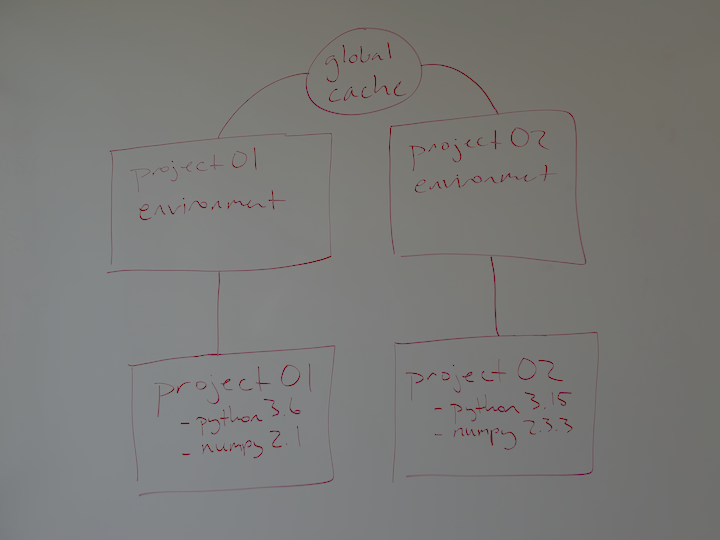 global
cache
project 01
environment
project 02
environmet
project 01
- python 3.6
- numpy 2.1
project 02
- python 3.15
- numpy 2.3.3